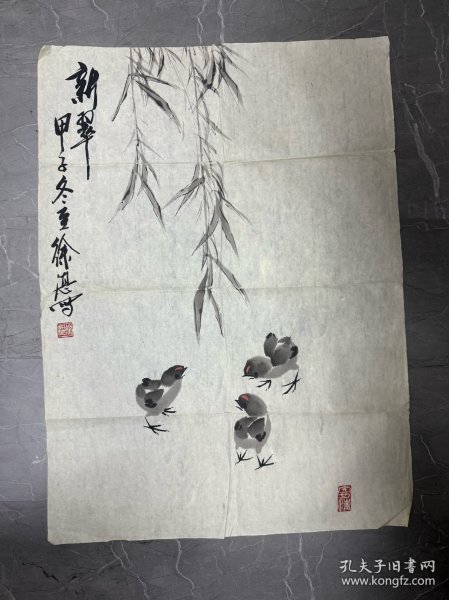 新翠
甲子冬至徐湛写
孔夫子旧书网
www.kongfz.com